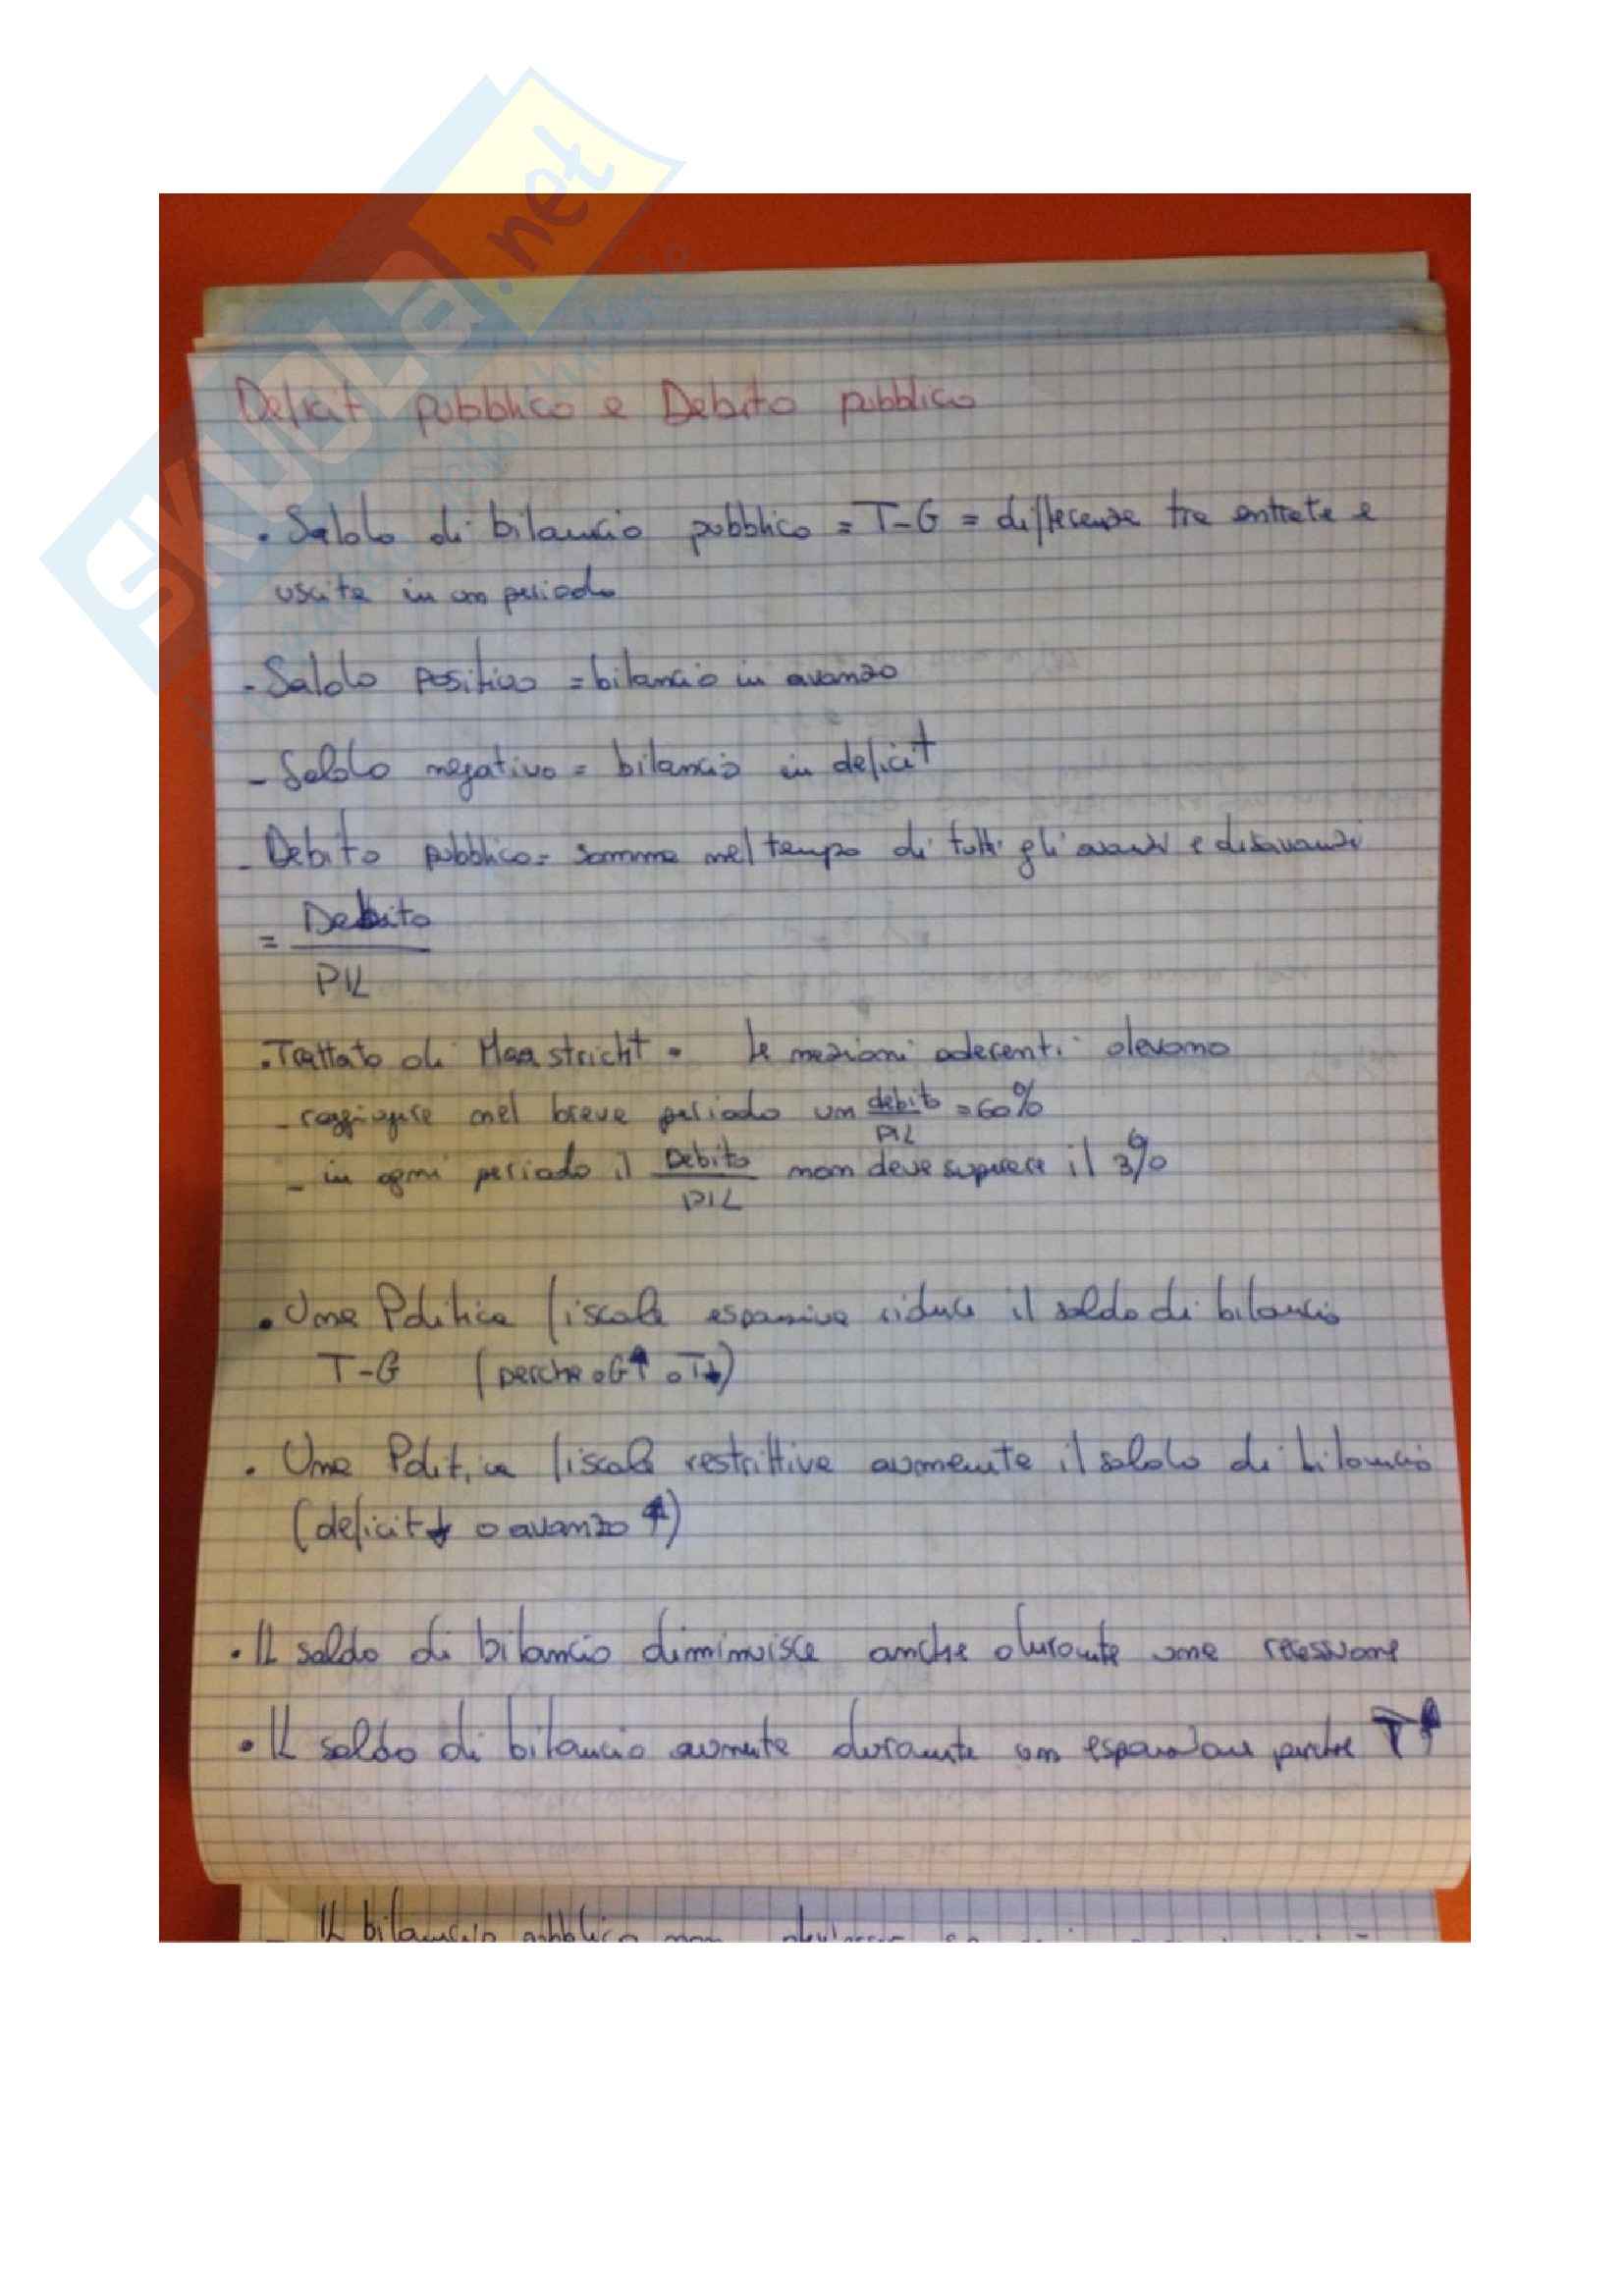 SKUOLA.net
Deficit pubblico e Debito pubblico
• Saldo di bilancio pubblico = T-G = differenza tra entrate e
uscite in un periodo
- Saldo positivo = bilancio in avanzo
- Saldo negativo = bilancio in deficit
- Debito pubblico = somma nel tempo di tutti gli avanzi e disavanzi
= Debito
PIL
• Trattato di Maastricht = le nazioni aderenti devono
- raggiungere nel breve periodo un debito = 60%
PIL
- in ogni periodo il Debito non deve superare il 3%
PIL
• Una Politica fiscale espansiva riduce il saldo di bilancio
T-G (perche o G↑ o T↓)
• Una Politica fiscale restrittiva aumenta il saldo di bilancio
(deficit↓ o avanzo ↑)
• Il saldo di bilancio diminuisce anche durante una recessione
• Il saldo di bilancio aumenta durante un espansione perche T↑
- Il bilancio pubblico non